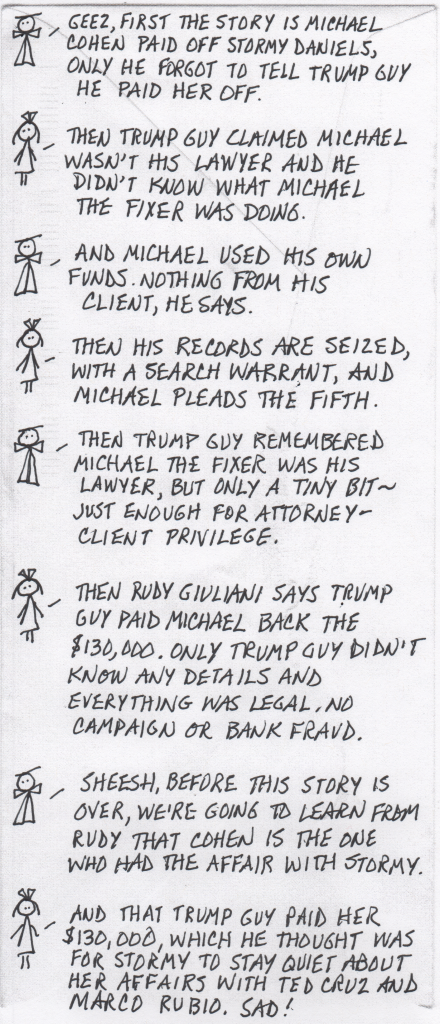 GEEZ, FIRST THE STORY IS MICHAEL
COHEN PAID OFF STORMY DANIELS,
ONLY HE FORGOT TO TELL TRUMP GUY
HE PAID HER OFF.
THEN TRUMP GUY CLAIMED MICHAEL
WASN'T HIS LAWYER AND HE
DIDN'T KNOW WHAT MICHAEL
THE FIXER WAS DOING.
AND MICHAEL USED HIS OWN
FUNDS. NOTHING FROM HIS
CLIENT, HE SAYS.
THEN HIS RECORDS ARE SEIZED,
WITH A SEARCH WARRANT, AND
MICHAEL PLEADS THE FIFTH.
THEN TRUMP GUY REMEMBERED
MICHAEL THE FIXER WAS HIS
LAWYER, BUT ONLY A TINY BIT~
JUST ENOUGH FOR ATTORNEY-
CLIENT PRIVILEGE.
THEN RUDY GIULIANI SAYS TRUMP
GUY PAID MICHAEL BACK THE
$130,000. ONLY TRUMP GUY DIDN'T
KNOW ANY DETAILS AND
EVERYTHING WAS LEGAL. NO
CAMPAIGN OR BANK FRAUD.
SHEESH, BEFORE THIS STORY IS
OVER, WE'RE GOING TO LEARN FROM
RUDY THAT COHEN IS THE ONE
WHO HAD THE AFFAIR WITH STORMY.
AND THAT TRUMP GUY PAID HER
$130,000, WHICH HE THOUGHT WAS
FOR STORMY TO STAY QUIET ABOUT
HER AFFAIRS WITH TED CRUZ AND
MARCO RUBIO. SAD!